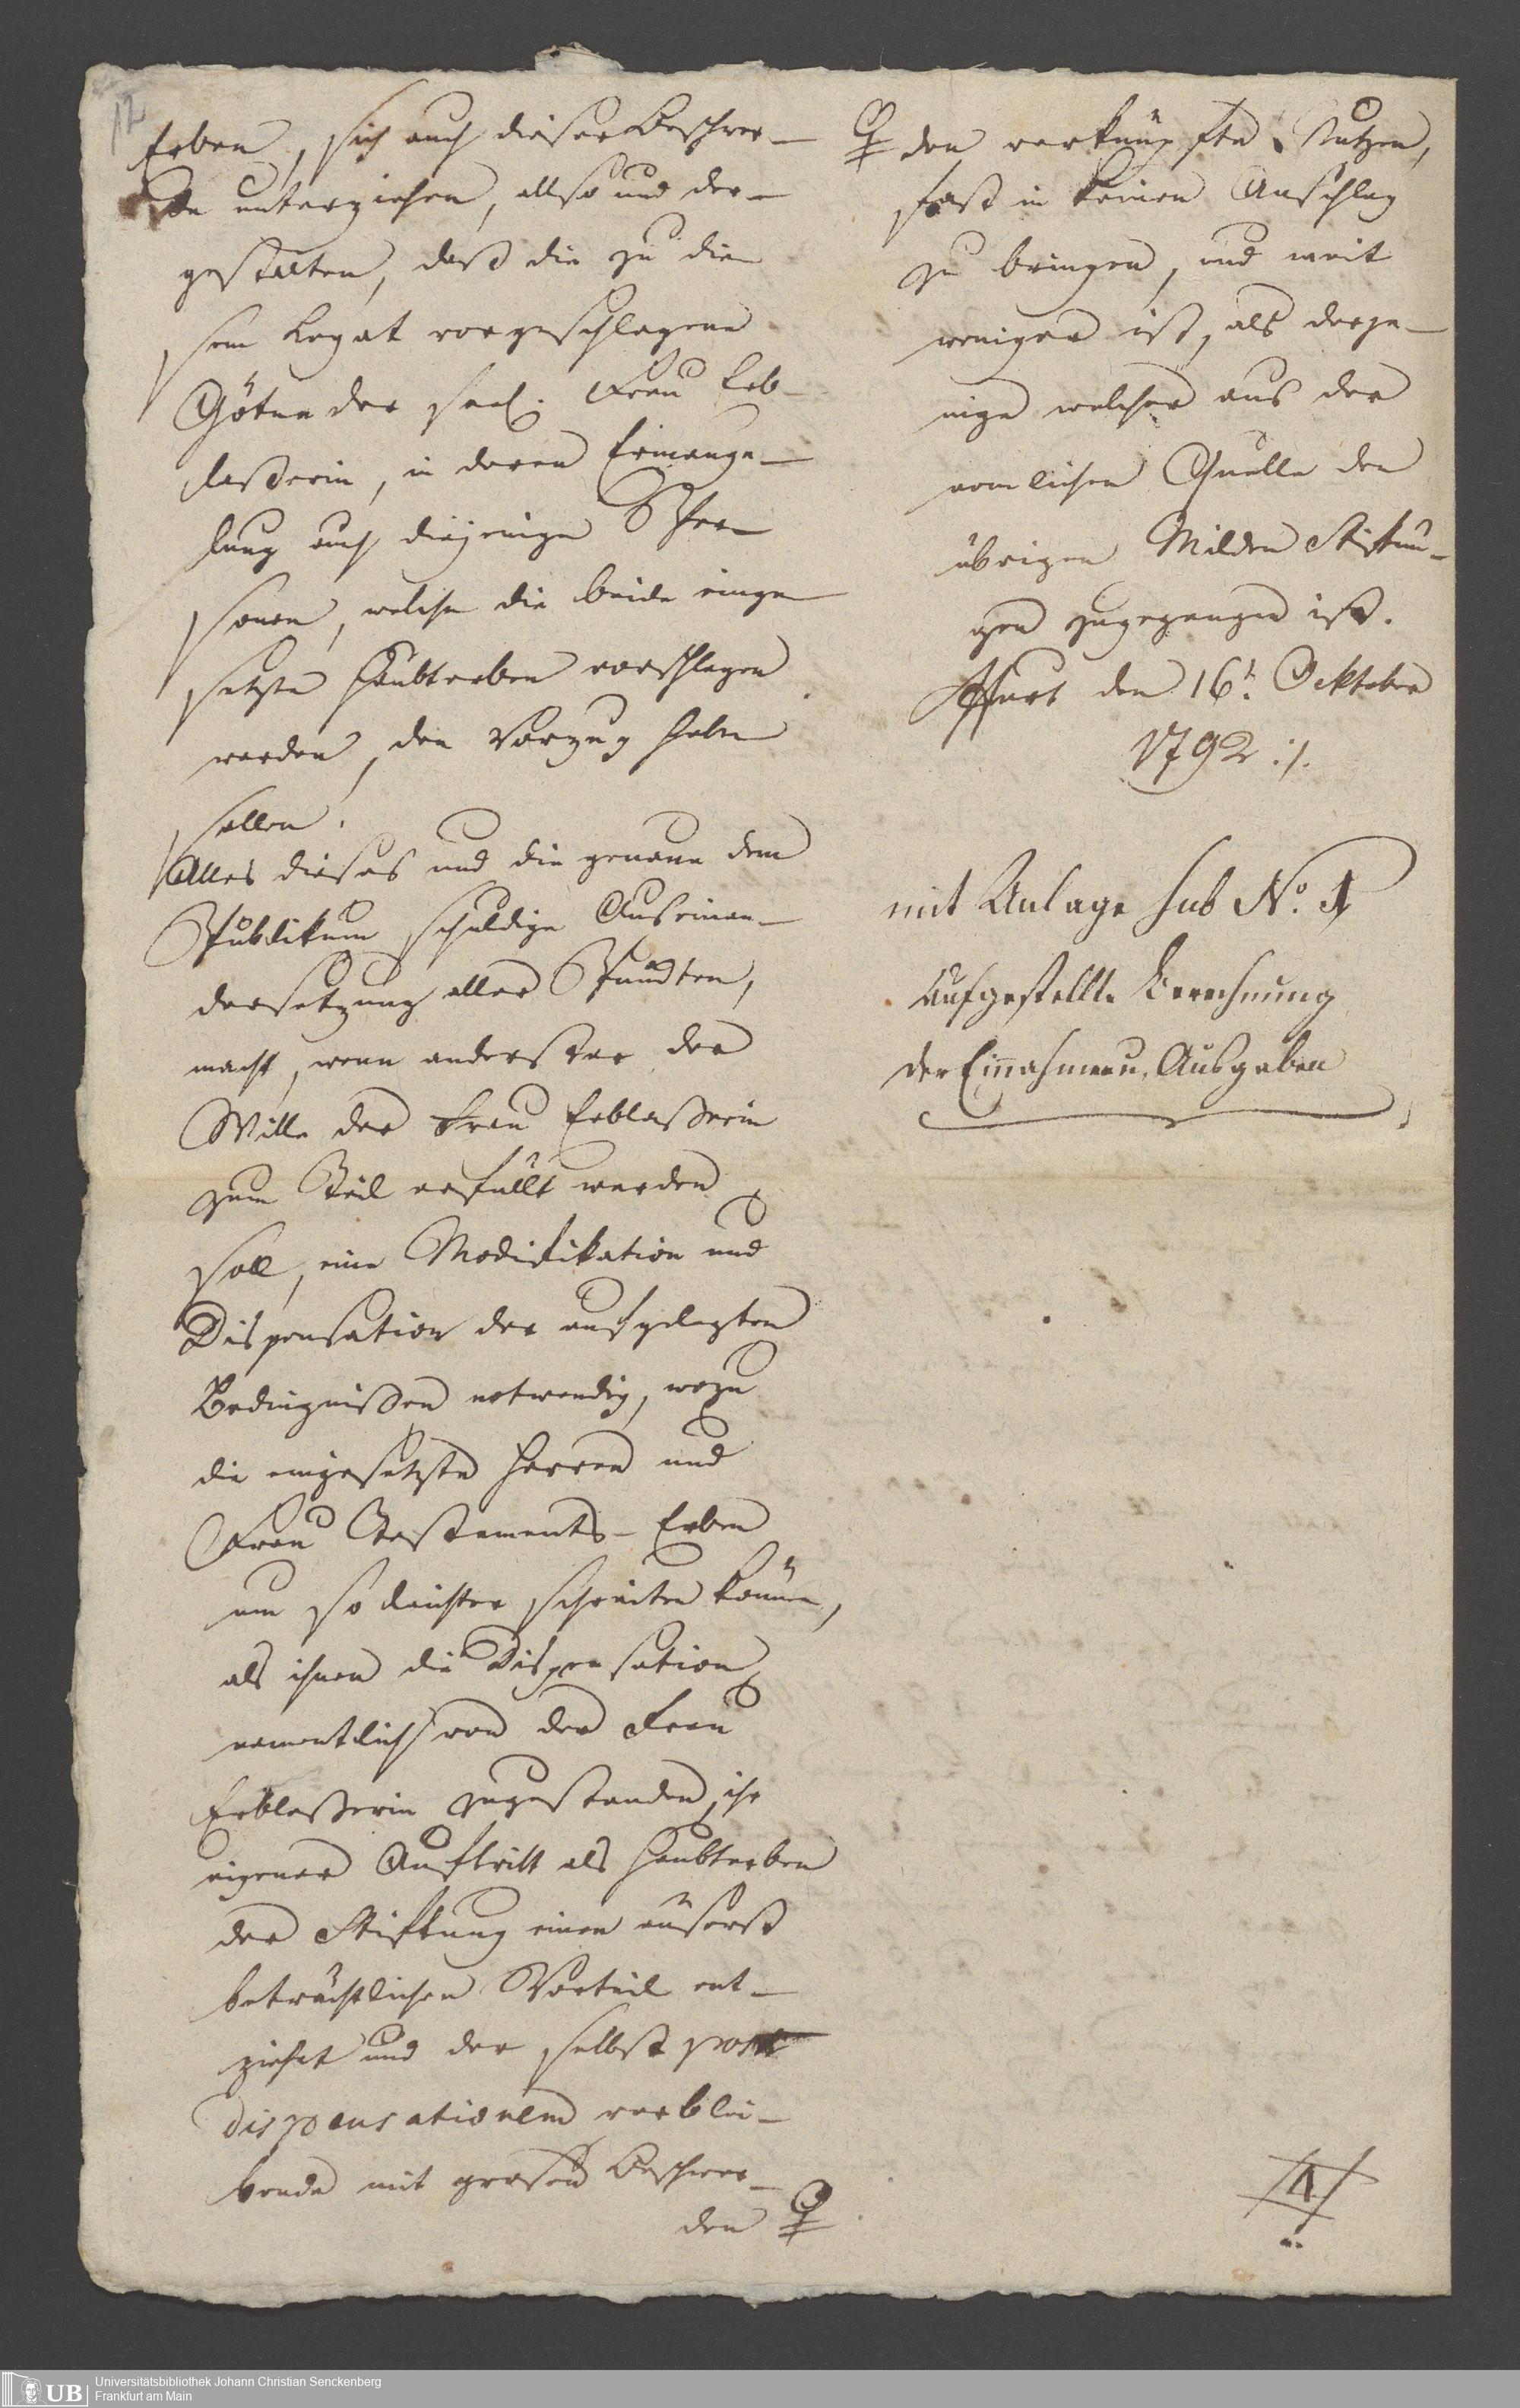 12
Erben, sich auch dieser Beschwer-
de unterziehen, also und der-
gestalten, daß die zu die
sem Legat vorgeschlagene
Göten der seel. Frau Erb-
laßerin, in deren Ermange-
lung auch diejenige Per-
sonen, welche die beide einge
setzte Haubterben vorschlagen
werden, den Vorzug haben
sollen.
Alles dieses und die genaue dem
Publikum schuldige Auseinan-
dersetzung aller Punckten,
macht, wenn anderster der
Wille der Frau Erblaßerin
zum Teil erfüllt werden
soll, eine Modifikation und
Dispensation der aufgelegten
Bedingnißen notwendig, wozu
die eingesetzte Herren und
Frau Testaments-Erben
um so leichter schreiten können,
als ihnen die Dispensation
namentlich von der Frau
Erblaßerin zugestanden, ihr
eigener Auftritt als Haubterben
der Stiftung einen äuserst
beträchtlichen Vorteil ent-
ziehet und der selbst post
dispensationem verblei-
bende mit grosen Beschwer-
den
den verknüpfte Nutzen,
fast in keinen Anschlag
zu bringen, und weit
weniger ist, als derje-
nige welcher aus der
nemlichen Quelle den
übrigen Milden Stiftun-
gen zugegangen ist.
Ffurt den 16t. Oktober
1792 ./.
mit Anlage sub No. 1
Aufgestellte Berechnung
der Einnahmen u. Ausgaben
4
Universitätsbibliothek Johann Christian Senckenberg
UB Frankfurt am Main